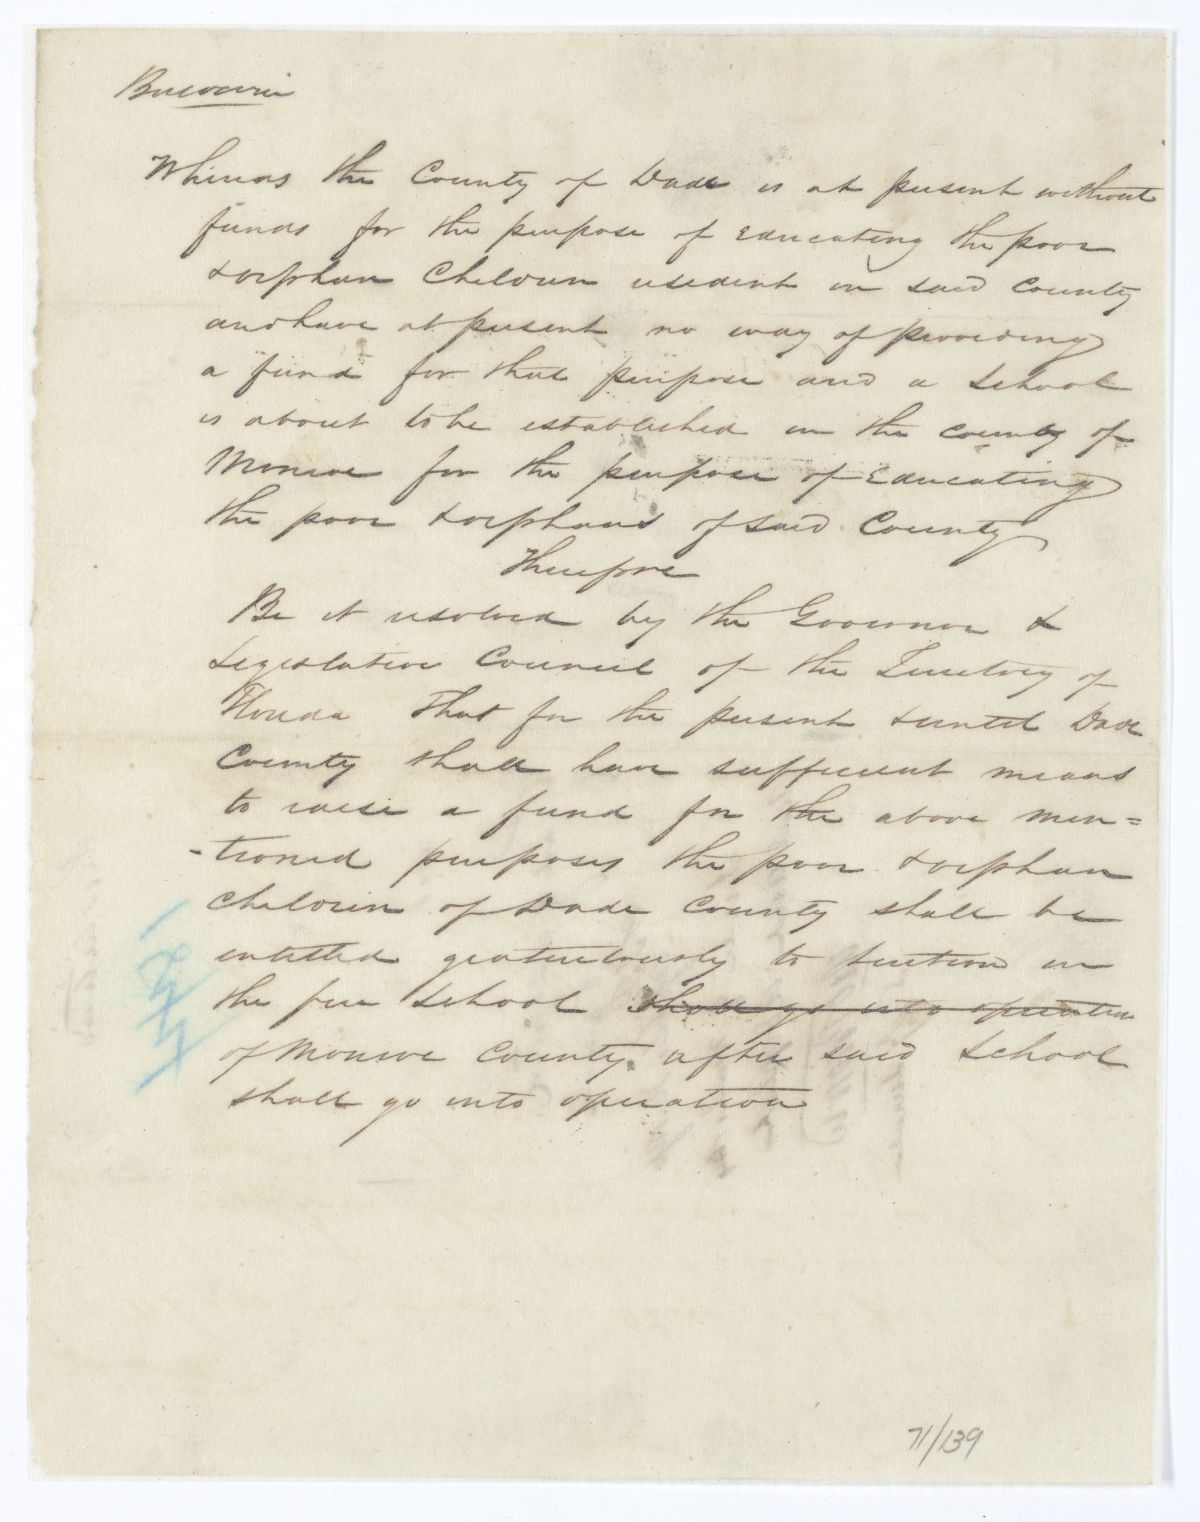 Whereas the County of Dade is at present without
funds for the purpose of Educating the poor
& orphan Children resident in said County
and have at present no way of providing
a fund for that purpose and a School
is about to be established in the County of
Monroe for the purpose of Educating
the poor & orphans of said County
Therefore
Be it resolved by the Governor &
Legislative Council of the Territory of
Florida That for the present & until Dade
County shall have sufficient means
to raise a fund for the above men=
-tioned purposes the poor & orphan
Children of Dade County shall be
entitled gratuitously to tuition in
the free School shall go into operation
of Monroe County. after said School
shall go into operation
1844
71/139